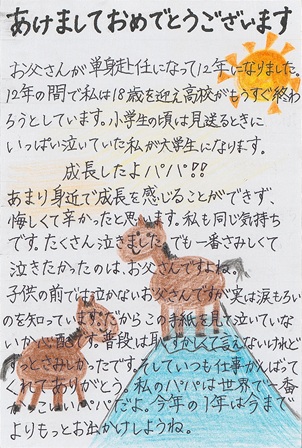 あけましておめでとうございます
お父さんが単身赴任になって12年になりました。
12年の間で私は18歳を迎え高校がもうすぐ終わ
ろうとしています。小学生の頃は見送るときに
いっぱい泣いていた私が大学生になります。
成長したよパパ!!
あまり身近で成長を感じることができず、
悔しくて辛かったと思います。私も同じ気持ち
です。たくさん泣きました。でも一番さみしくて
泣きたかったのは、お父さんですよね。
子供の前では泣かないお父さんですが実は涙もろい
のを知っています。だからこの手紙を見て泣いていな
いか心配です。普段は恥ずかしくて言えないけれど
ずっとさみしかったです。そしていつも仕事がんばって
くれてありがとう。私のパパは世界で一番
かっこいいパパだよ。今年の1年は今まで
よりもっとお出かけしようね。